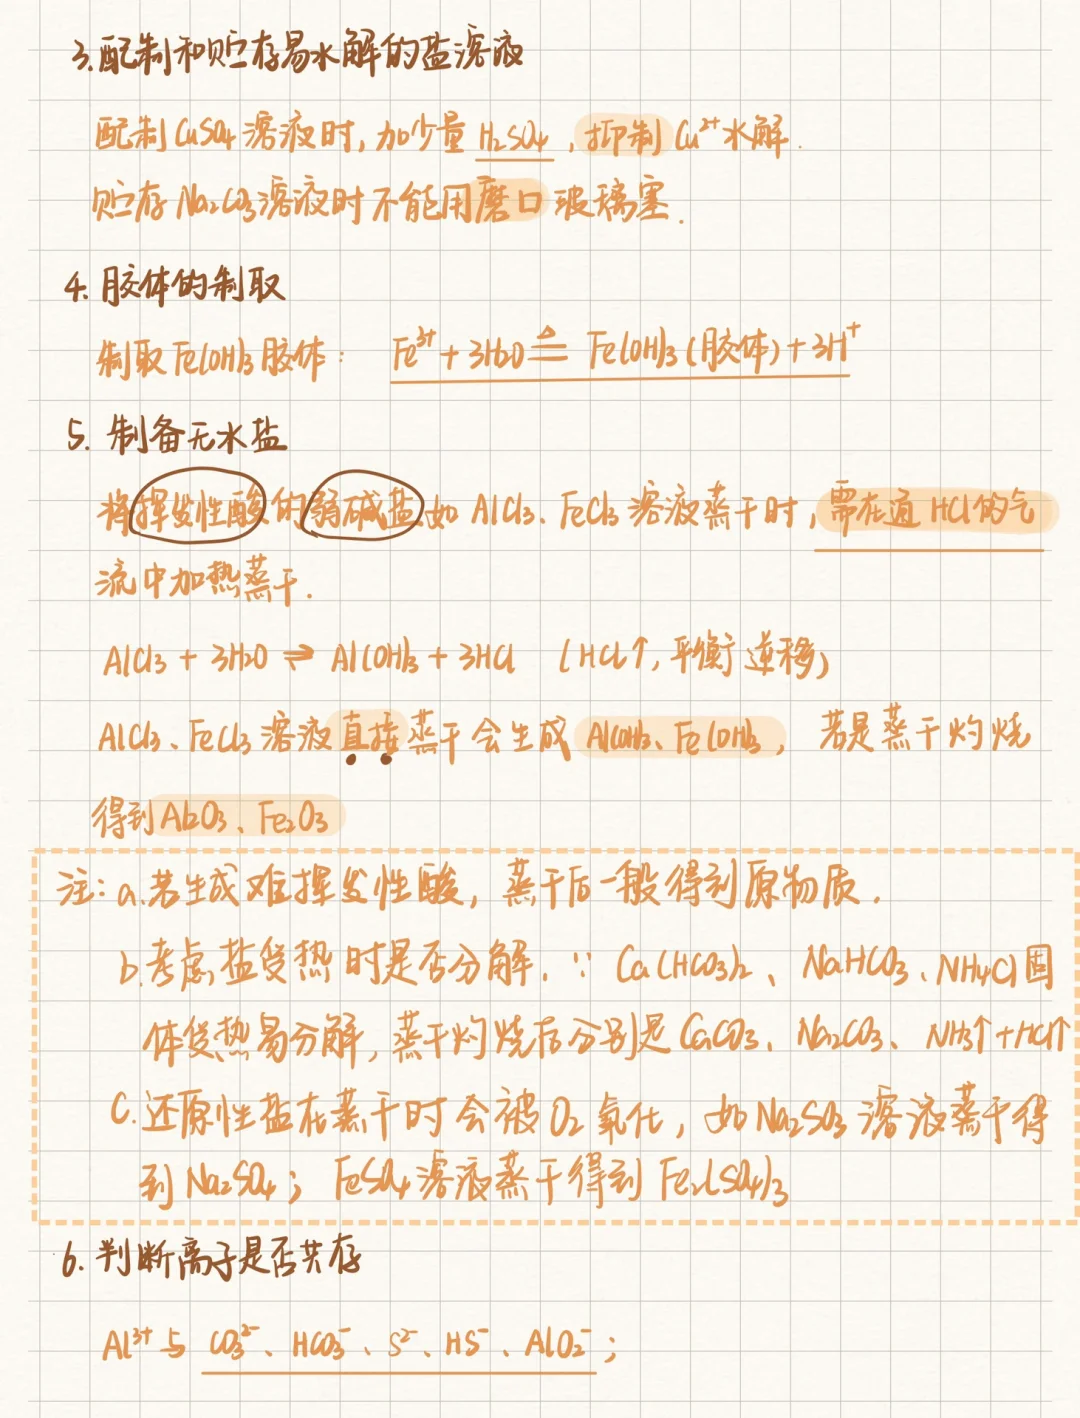 3.配制和贮存易水解的盐溶液
配制CuSO₄溶液时,加少量H₂SO₄,抑制Cu²⁺水解.
贮存Na₂CO₃溶液时不能用磨口玻璃塞.
4.胶体的制取
制取Fe(OH)₃胶体: Fe³⁺+3H₂O≜Fe(OH)₃(胶体)+3H⁺
5.制备无水盐
将挥发性酸的弱碱盐如AlCl₃、FeCl₃溶液蒸干时,需在通HCl的气
流中加热蒸干.
AlCl₃+3H₂O⇌Al(OH)₃+3HCl (HCl↑,平衡逆移)
AlCl₃、FeCl₃溶液直接蒸干会生成Al(OH)₃、Fe(OH)₃,若是蒸干灼烧
得到Al₂O₃、Fe₂O₃
注:a.若生成难挥发性酸,蒸干后一般得到原物质.
b.考虑盐受热时是否分解.∵Ca(HCO₃)₂、NaHCO₃、NH₄Cl固
体受热易分解,蒸干灼烧后分别是CaCO₃、Na₂CO₃、NH₃↑+HCl↑
C.还原性盐在蒸干时会被O₂氧化,如Na₂SO₃溶液蒸干得
到Na₂SO₄;FeSO₄溶液蒸干得到Fe₂(SO₄)₃
6.判断离子是否共存
Al³⁺与CO₃²⁻、HCO₃⁻、S²⁻、HS⁻、AlO₂⁻;